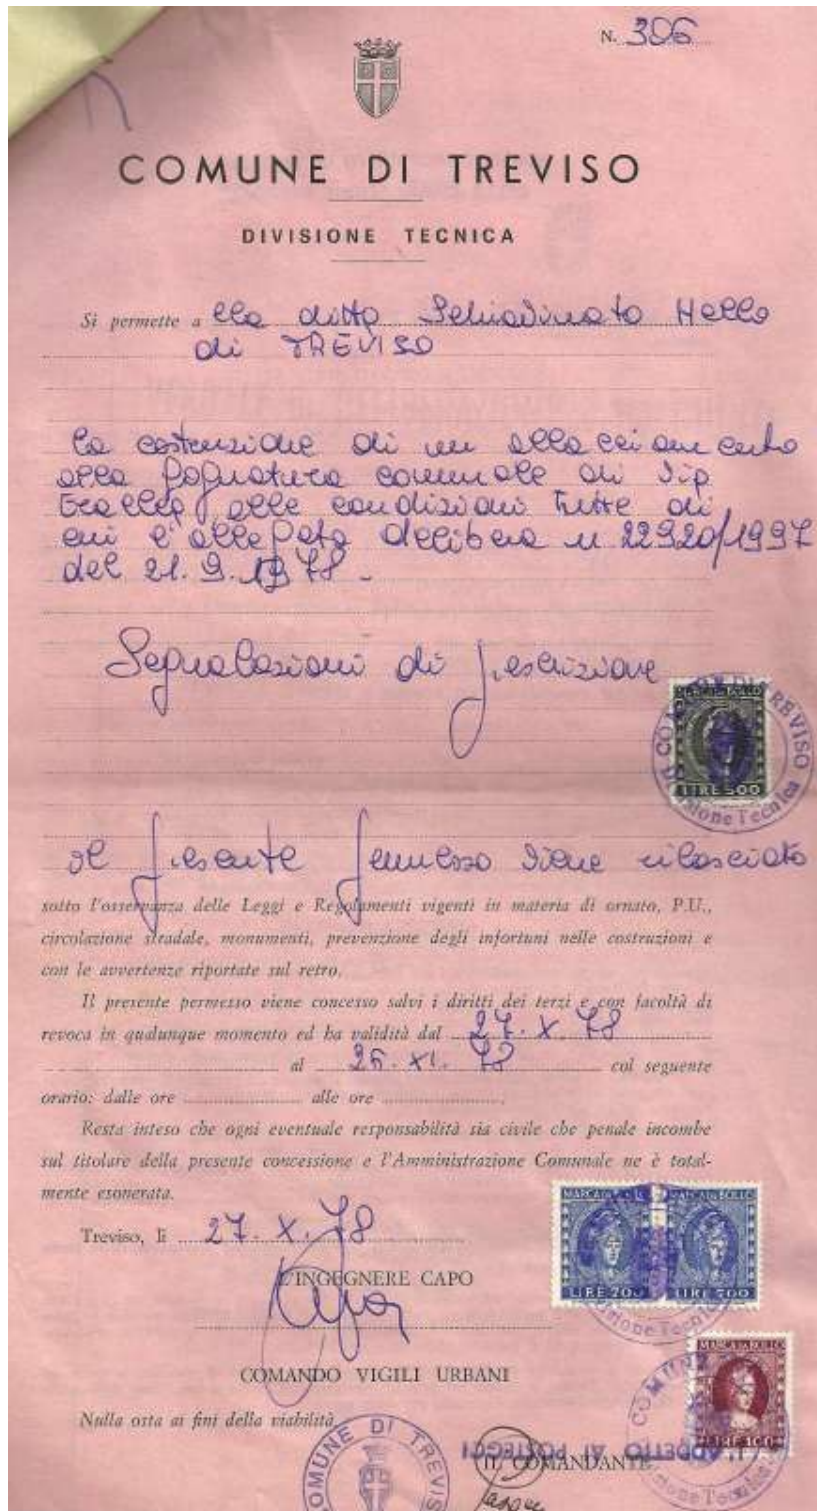 N. 306
COMUNE DI TREVISO
DIVISIONE TECNICA
Si permette a lla ditta Schiavinato
di TREVISO
la costruzione di un allacciamento
alla fognatura comunale di
alle condizioni tutte di
cui l'allegata delibera n 22920/1997
del 21.9.1978.
Segnalazioni di prescrizione
COMUNE DI TREVISO
Divisione Tecnica
MARCA DA BOLLO
LIRE 500
Il presente permesso viene rilasciato
sotto l'osservanza delle Leggi e Regolamenti vigenti in materia di ornato, P.U.,
circolazione stradale, monumenti, prevenzione degli infortuni nelle costruzioni e
con le avvertenze riportate sul retro.
Il presente permesso viene concesso salvi i diritti dei terzi e con facoltà di
revoca in qualunque momento ed ha validità dal 27. X. 78
al 26. XI. 78 col seguente
orario: dalle ore alle ore
Resta inteso che ogni eventuale responsabilità sia civile che penale incombe
sul titolare della presente concessione e l'Amministrazione Comunale ne è total-
mente esonerata.
MARCA DA BOLLO MARCA DA BOLLO
Treviso, lì 27. X. 78
LIRE 700 LIRE 700
L'INGEGNERE CAPO
MARCA DA BOLLO
COMANDO VIGILI URBANI
Nulla osta ai fini della viabilità
LIRE 100
COMUNE DI TREVIS
L'ADDETTO AI POSTEGGI
IL COMANDANTE